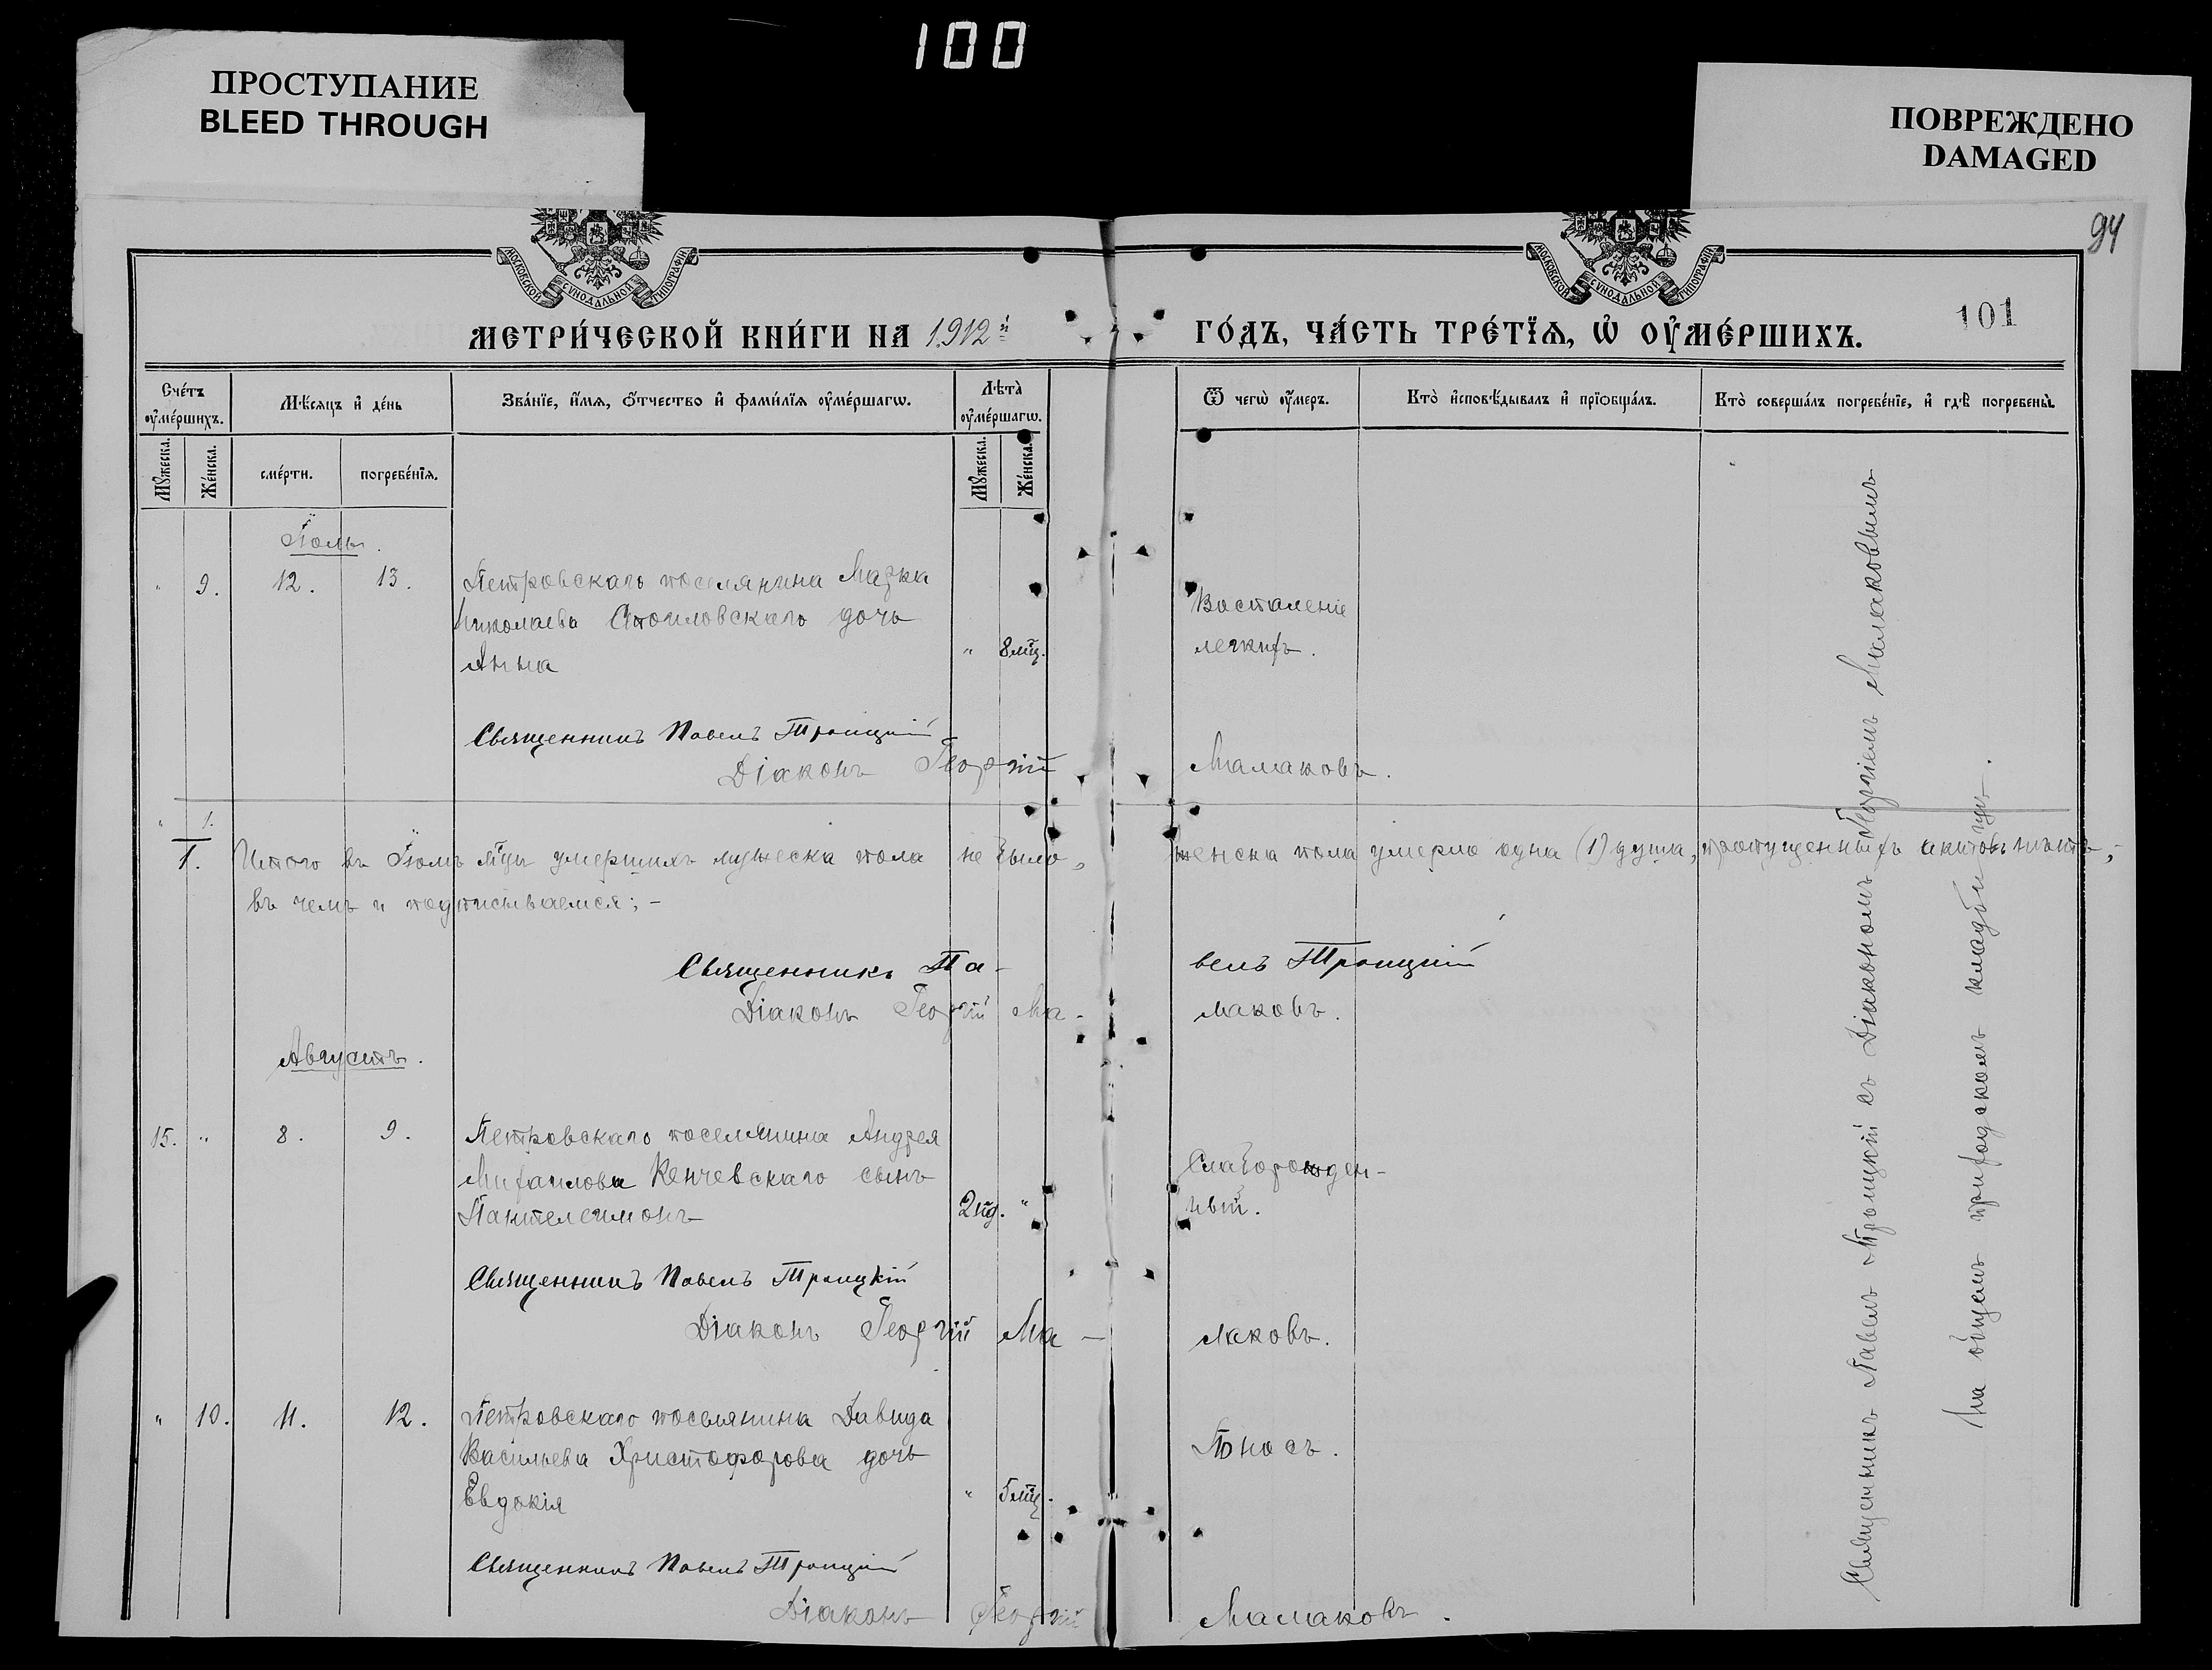 100
ПРОСТУПАНИЕ
BLEED THROUGH
ПОВРЕЖДЕНО
DAMAGED
94
101
МОСКОВСКОЙ СѴНОДАЛЬНОЙ ТИПОГРАФІИ
МОСКОВСКОЙ СѴНОДАЛЬНОЙ ТИПОГРАФІИ
МЕТРИ́ЧЕСКОЙ КНИ́ГИ НА 1912й
ГО́ДЪ, ЧА́СТЬ ТРЕ́ТЇѦ, Ѡ҆ ОУ҆МЕ́РШИХЪ.
Сче́тъ оу҆ме́ршихъ.
Мѣ́сяцъ и҆ де́нь
Зва́нїе, и҆́мѧ, ѻ҆́тчество и҆ фами́лїѧ оу҆ме́ршагѡ.
Лѣта̀ оу҆ме́ршагѡ.
Ѿ чегѡ̀ оу҆́меръ.
Кто̀ и҆сповѣ́дывалъ и҆ прїѡбща́лъ.
Кто̀ соверша́лъ погребе́нїе, и҆ гдѣ̀ погребены̀.
Мꙋ́жеска.
Же́нска.
сме́рти.
погребе́нїѧ.
Мꙋ́жеска.
Же́нска.
Іюль.
" 9. 12. 13. Петровскаго поселянина Марка
Николаева Стоиловскаго дочь
Анна " 8 мц.
Воспаленіе
легкихъ.
Священникъ Павелъ Троицкій
Діаконъ Георгій Малаковъ.
" 1.
1. Итого въ Іюлѣ мцѣ умершихъ мужеска пола не было, женска пола умерло одна (1) душа, пропущенныхъ актовъ нѣтъ,
въ чемъ и подписываемся:-
Священникъ Павелъ Троицкій
Діаконъ Георгій Малаковъ.
Августъ.
15. " 8. 9. Петровскаго поселянина Андрея
Михаилова Кенчевскаго сынъ
Пантелеимонъ 2 нд. "
Слаборожден-
ный.
Священникъ Павелъ Троицкій
Діаконъ Георгій Малаковъ.
" 10. 11. 12. Петровскаго поселянина Давида
Васильева Христофорова дочь
Евдокія " 5 мц.
Поносъ.
Священникъ Павелъ Троицкій
Діаконъ Георгій Малаковъ.
Священникъ Павелъ Троицкій съ Діакономъ Георгіемъ Малаковымъ
на общемъ приходскомъ кладбищѣ.